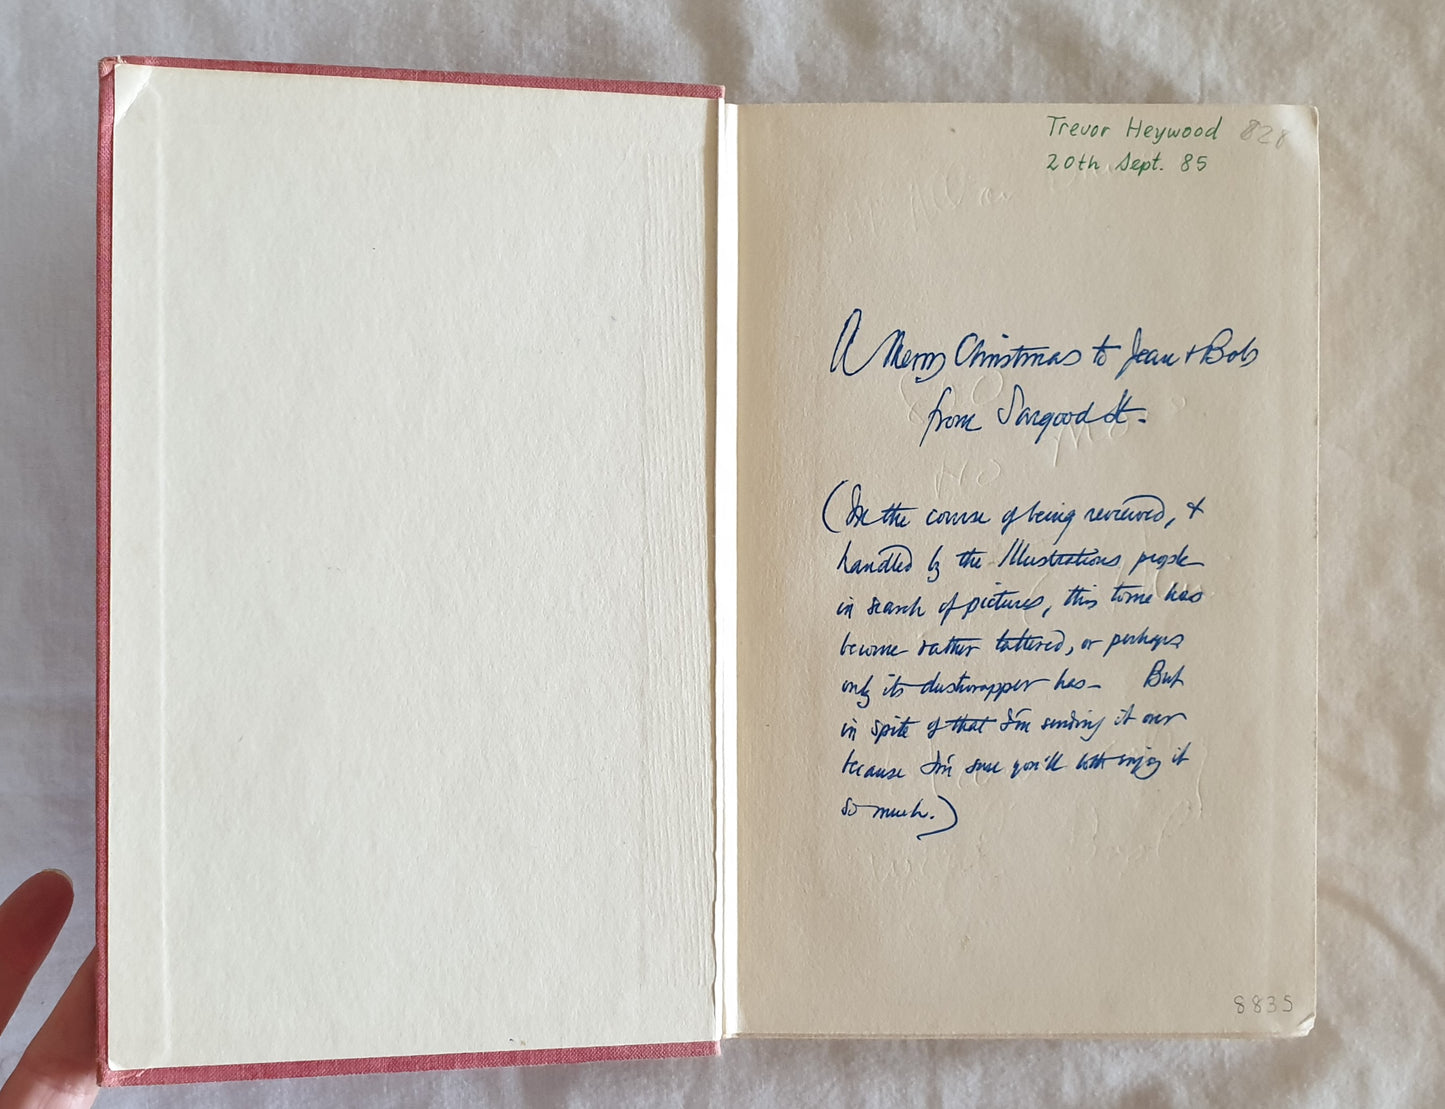 Trevor Heywood 828
20th Sept. 85
A Merry Christmas to Jean + Bob
from Sargood St.
(In the course of being reviewed, &
handled by the Illustrations people
in search of pictures, this tome has
become rather tattered, or perhaps
only its dustwrapper has - But
in spite of that I'm sending it over
because I'm sure you'll both enjoy it
so much.)
8835